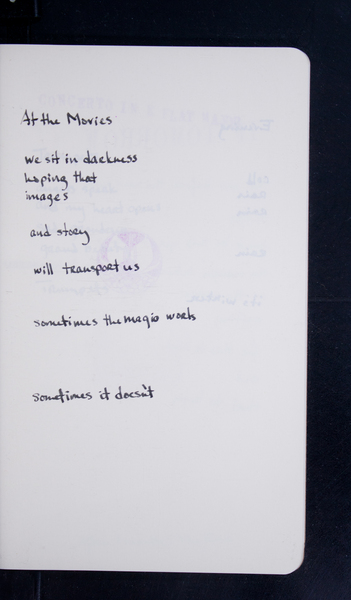 At the Movies
we sit in darkness
hoping that
images
and story
will transport us
sometimes the magic works
sometimes it doesn't